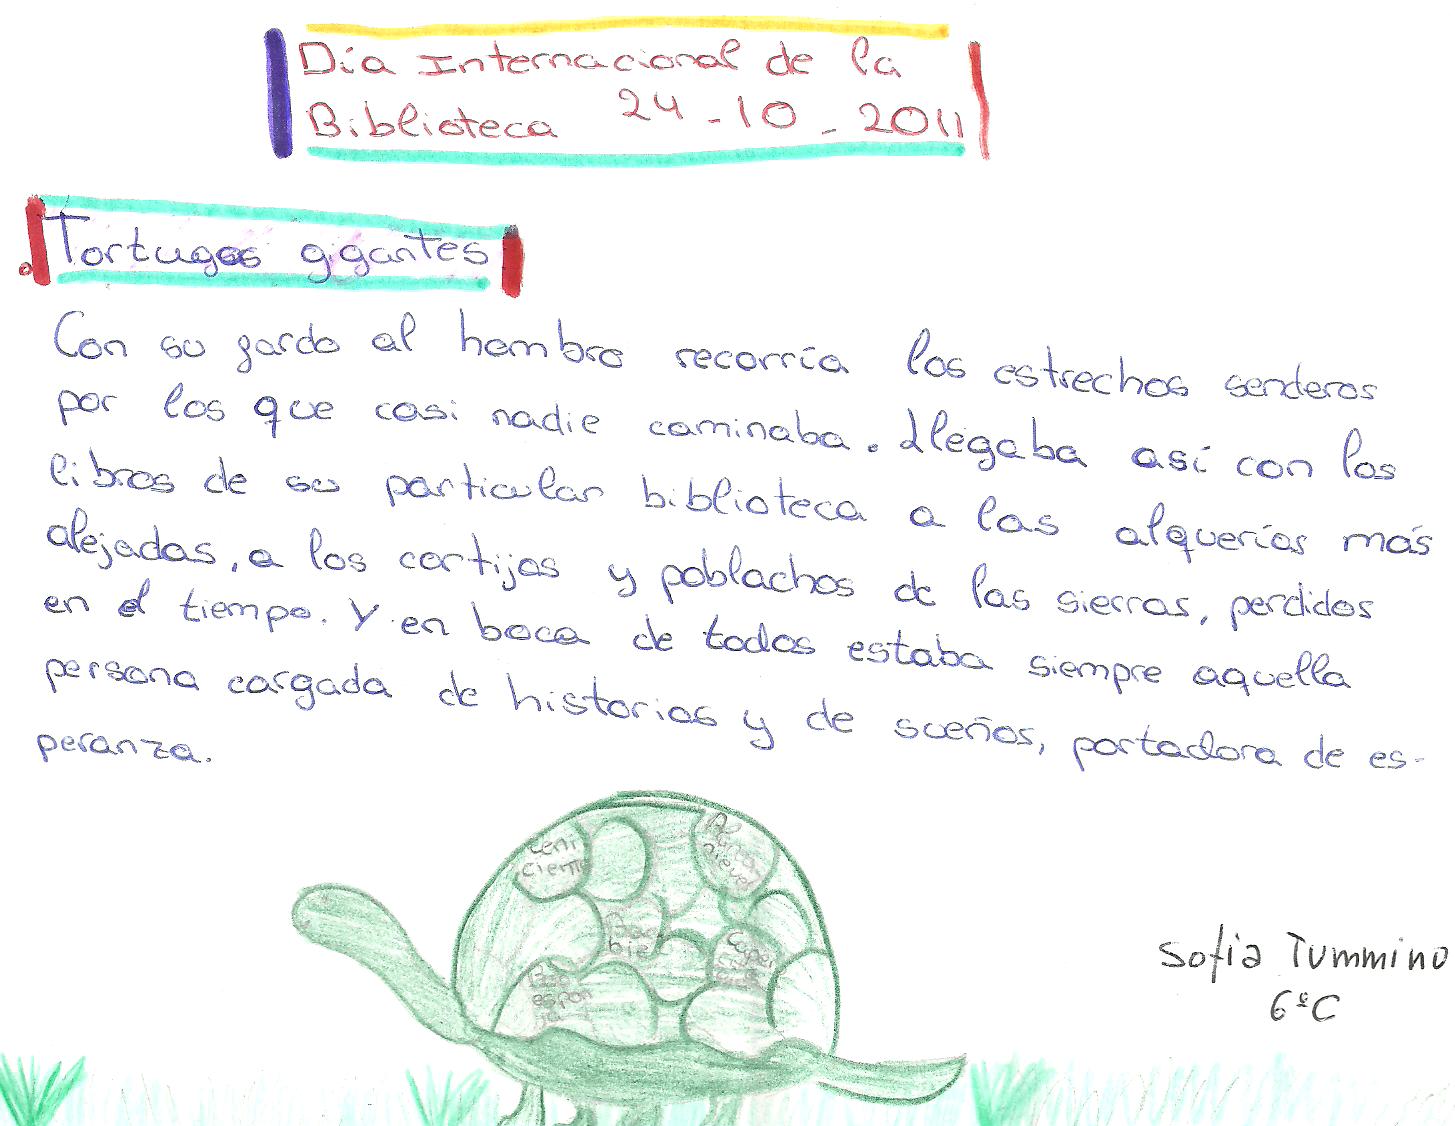 Día Internacional de la
Biblioteca 24-10-2011
Tortugas gigantes
Con su gardo al hombro recorría los estrechos senderos
por los que casi nadie caminaba. Llegaba así con los
libros de su particular biblioteca a las alquerías más
alejadas, a los cortijos y poblachos de las sierras, perdidos
en el tiempo. Y en boca de todos estaba siempre aquella
persona cargada de historias y de sueños, portadora de es-
peranza.
Ceni
cienta
Sofia Tummino
6ºC